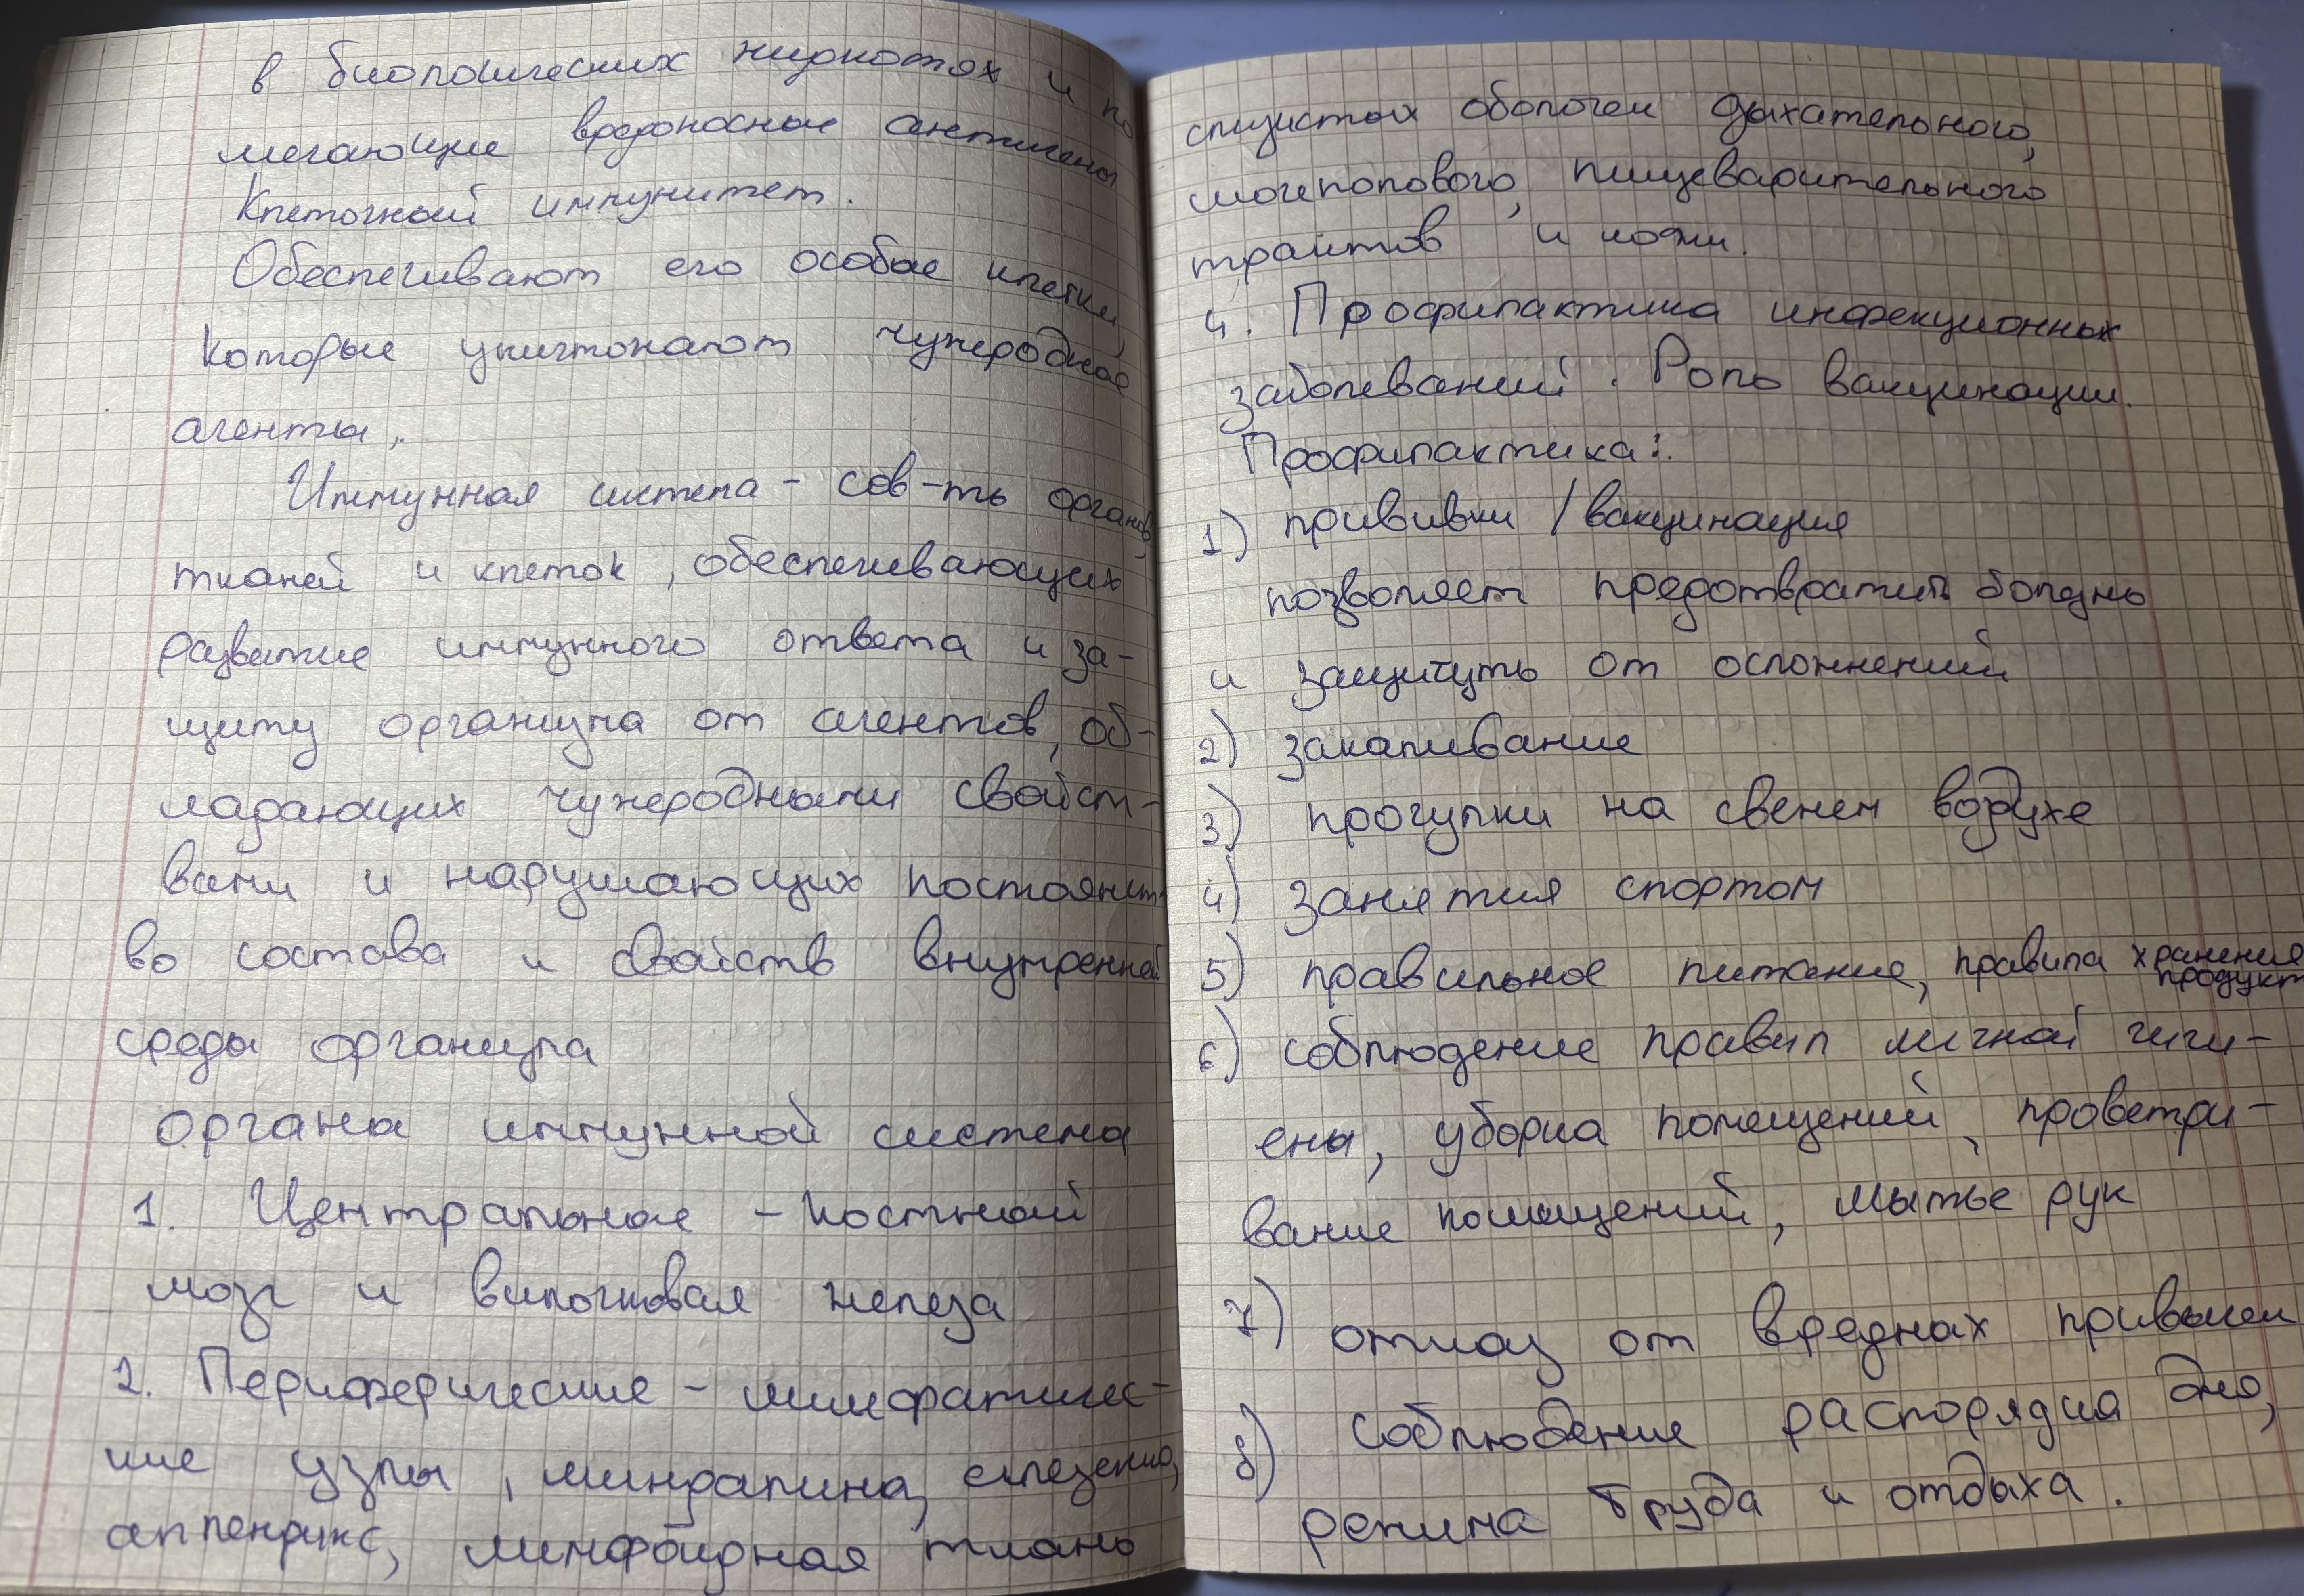 в биологических жидкостях и по
мегающие вредоносные антигены
Клеточный иммунитет.
Обеспечивают его особые клетки,
которые уничтожают чужеродные
агенты.
Иммунная система - сов-ть органов,
тканей и клеток, обеспечивающих
развитие иммунного ответа и за-
щиту организма от агентов, об-
ладающих чужеродными свойст-
вами и нарушающих постоянст-
во состава и свойств внутренней
среды организма
органы иммунной системы
1. Центральные - костный
мозг и вилочковая железа
2. Периферические - лимфатичес-
кие узлы, миндалина, селезенка,
аппендикс, лимфоидная ткань
слизистых оболочек дыхательного,
мочеполового, пищеварительного
трактов и кожи.
4. Профилактика инфекционных
заболеваний. Роль вакцинации.
Профилактика:
1) прививки / вакцинация
позволяет предотвратить болезнь
и защитуть от осложнений
2) закаливание
3) прогулки на свежем воздухе
4) занятия спортом
5) правильное питание, правила хранения
продукт
6) соблюдение правил личной гиги-
ены, уборка помещений, проветри-
вание помещений, мытье рук
7) отказ от вредных привычек
8) соблюдение распорядка дня,
режима труда и отдыха.